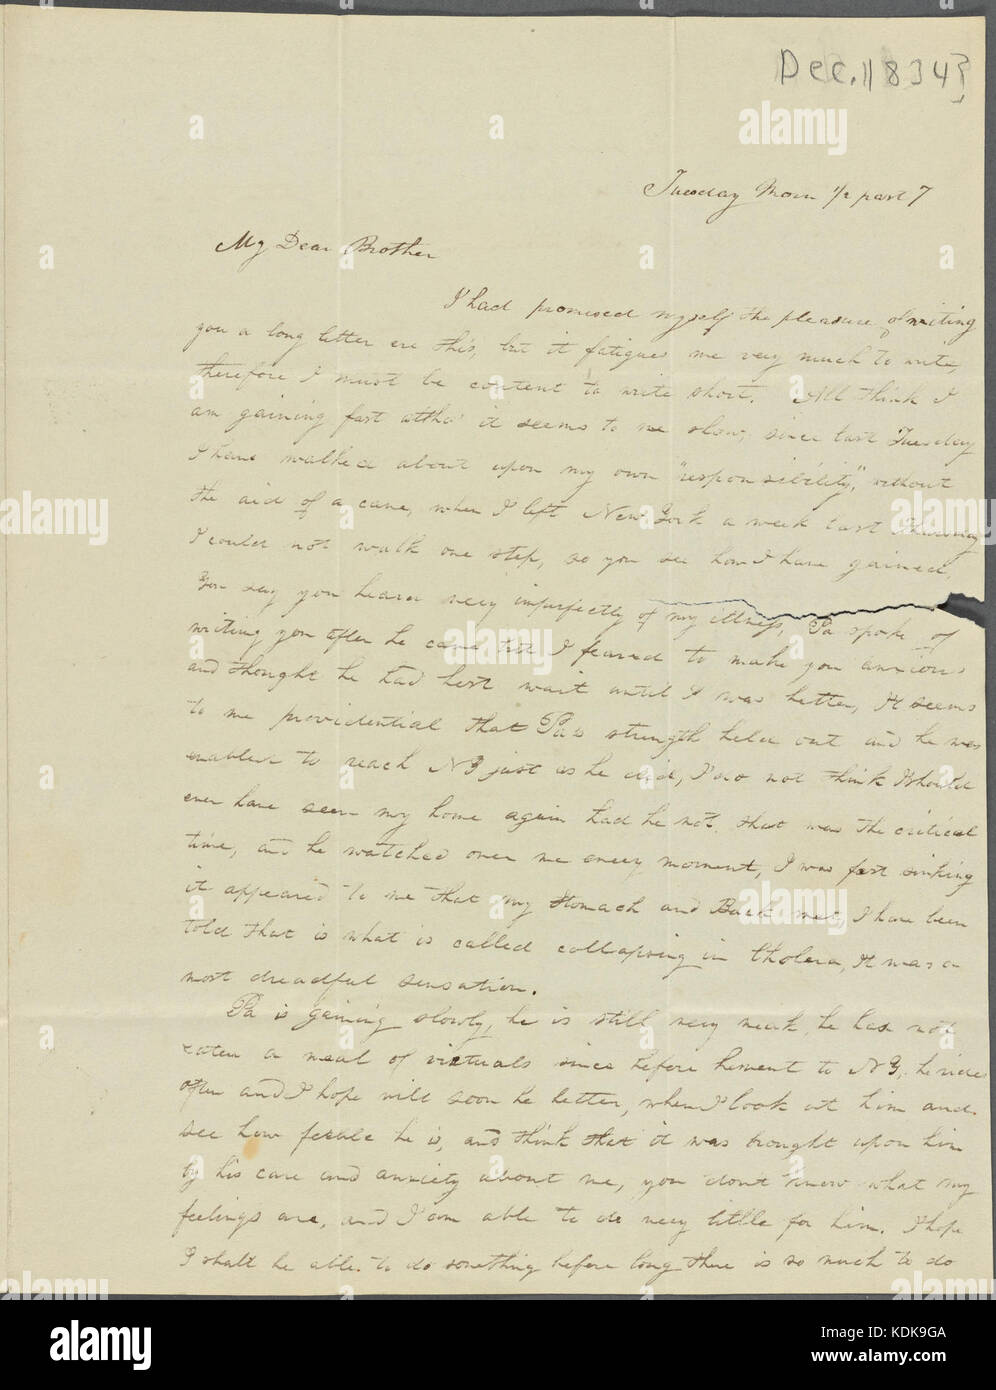 Dec. 1834}
Tuesday Morn 1/2 past 7
My Dear Brother
I had promised myself the pleasure of writing
you a long letter ere this, but it fatigues me very much to write,
therefore I must be content to write short. All think I
am gaining fast altho' it seems to me slow, since last Tuesday
I have walked about upon my own "responsibility", without
the aid of a cane, when I left New York a week last Thursday
I could not walk one step, so you see how I have gained.
You say you heard very imperfectly of my illness, Pa spoke of
writing you after he came, but I feared to make you anxious
and thought he had best wait until I was better, It seems
to me providential that Pa's strength held out and he was
enabled to reach NY just as he did, I do not think I should
ever have seen my home again had he not. that was the critical
time, and he watched over me every moment, I was fast sinking
it appeared to me that my Stomach and Back met, I have been
told that is what is called collapsing in Cholera, It was a
most dreadful sensation.
Pa is gaining slowly, he is still very weak, he has not
eaten a meal of victuals since before he went to NY. he rides
often and I hope will soon be better, when I look at him and
see how feeble he is, and think that it was brought upon him
by his care and anxiety about me, you don't know what my
feelings are, and I am able to do very little for him. I hope
I shall be able to do something before long there is so much to do
alamy
alamy
Image ID: KDK9GA
www.alamy.com